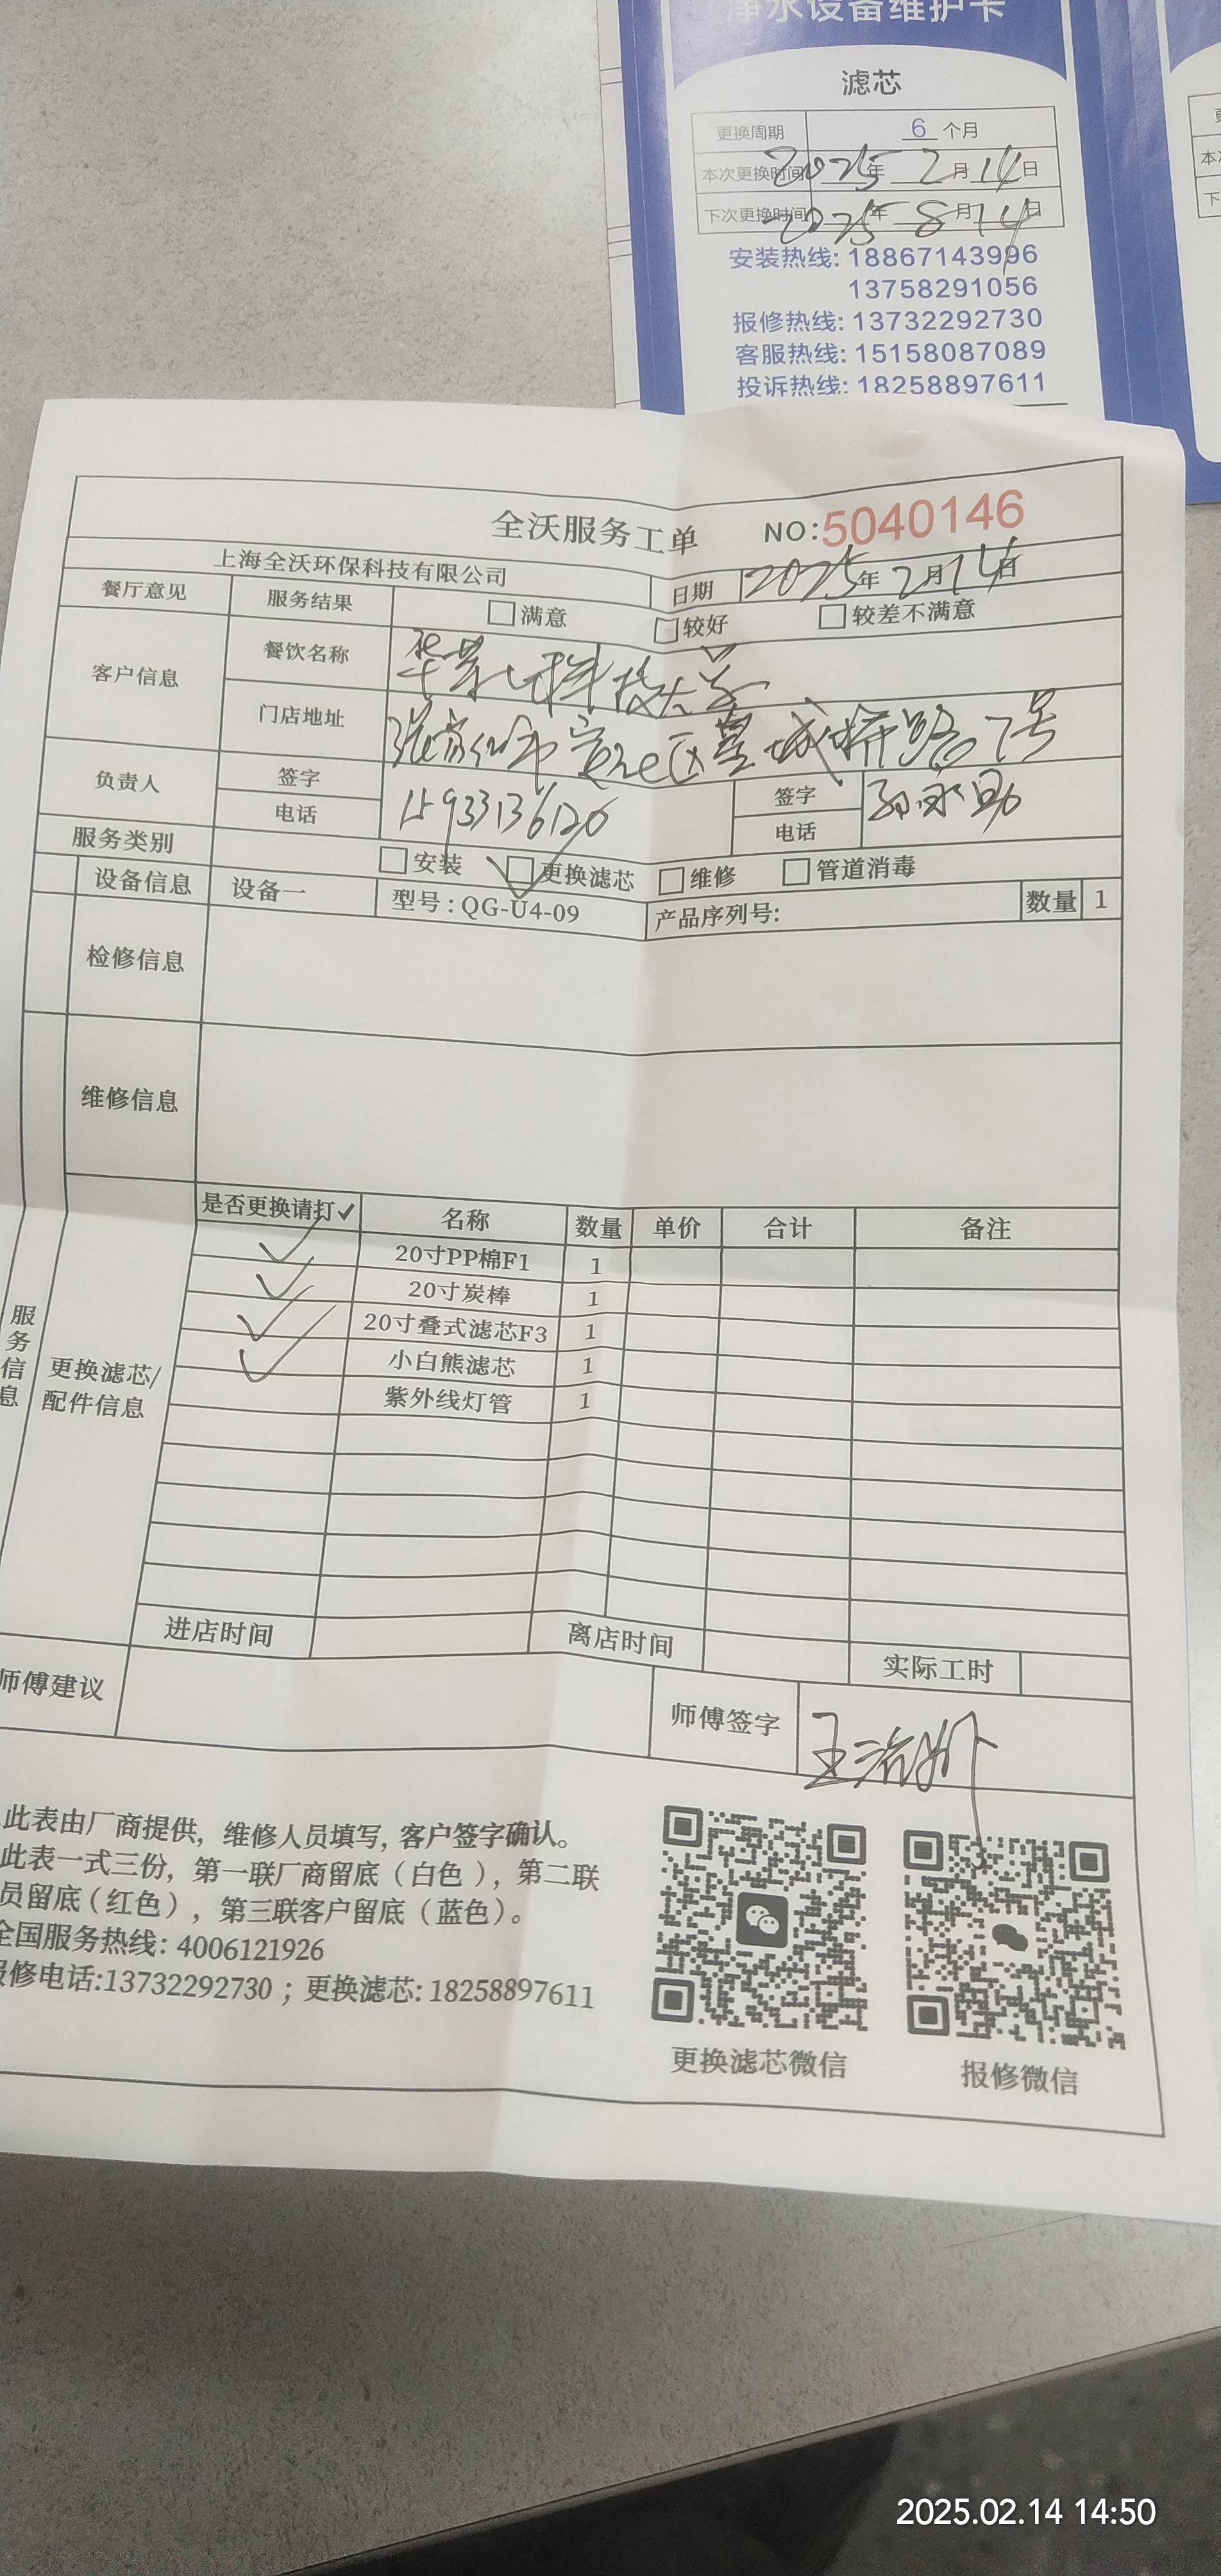 净水设备维护卡
滤芯
更换周期 6 个月
本次更换时间 2025年 2月 14日
下次更换时间 2025年 8月 14日
安装热线: 18867143996
13758291056
报修热线: 13732292730
客服热线: 15158087089
投诉热线: 18258897611
全沃服务工单 NO:5040146
上海全沃环保科技有限公司 日期 2025年 2月 14日
餐厅意见 服务结果 满意 较好 较差不满意
客户信息 餐饮名称 华 科技大学
门店地址 区皇城桥路7号
负责人 签字 签字
电话 15933136120 电话
服务类别 安装 更换滤芯 维修 管道消毒
设备信息 设备一 型号:QG-U4-09 产品序列号: 数量 1
检修信息
维修信息
服务信息
更换滤芯/
配件信息
是否更换请打✓ 名称 数量 单价 合计 备注
✓ 20寸PP棉F1 1
✓ 20寸炭棒 1
✓ 20寸叠式滤芯F3 1
✓ 小白熊滤芯 1
紫外线灯管 1
进店时间 离店时间 实际工时
师傅建议 师傅签字 王
此表由厂商提供，维修人员填写，客户签字确认。
此表一式三份，第一联厂商留底（白色），第二联
员留底（红色），第三联客户留底（蓝色）。
全国服务热线: 4006121926
报修电话:13732292730；更换滤芯: 18258897611
更换滤芯微信 报修微信
2025.02.14 14:50